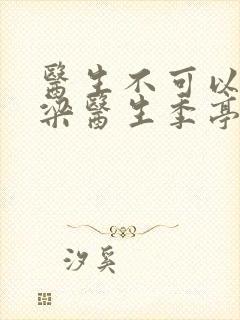 醫生不可以
梁醫生季亭
汐奚